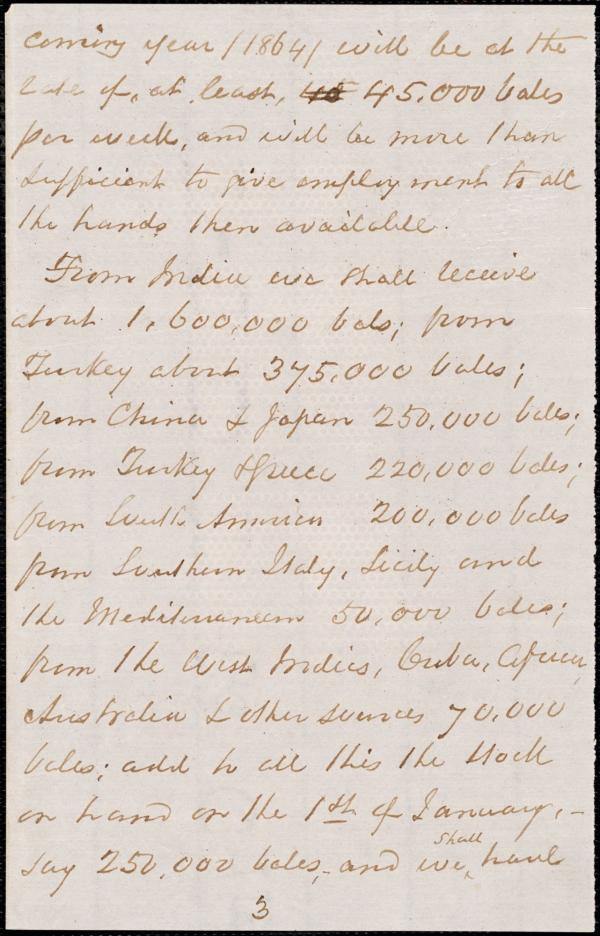 coming year /1864/ will be at the
rate of, at least, 45,000 bales
per week, and will be more than
sufficient to give employment to all
the hands then available.
From India we shall receive
about 1,600,000 bals; from
Turkey about 375,000 bales;
from China & Japan 250,000 bales;
from Turkey & Greece 220,000 bales;
from South America 200,000 bales
from Southern Italy, Sicily and
the Mediterranean 50,000 bales;
from the West Indies, Cuba, Africa,
Australia & other sources 70,000
bales; add to all this the stock
on hand on the 1st of January, -
say 250,000 bales, - and we shall have
3